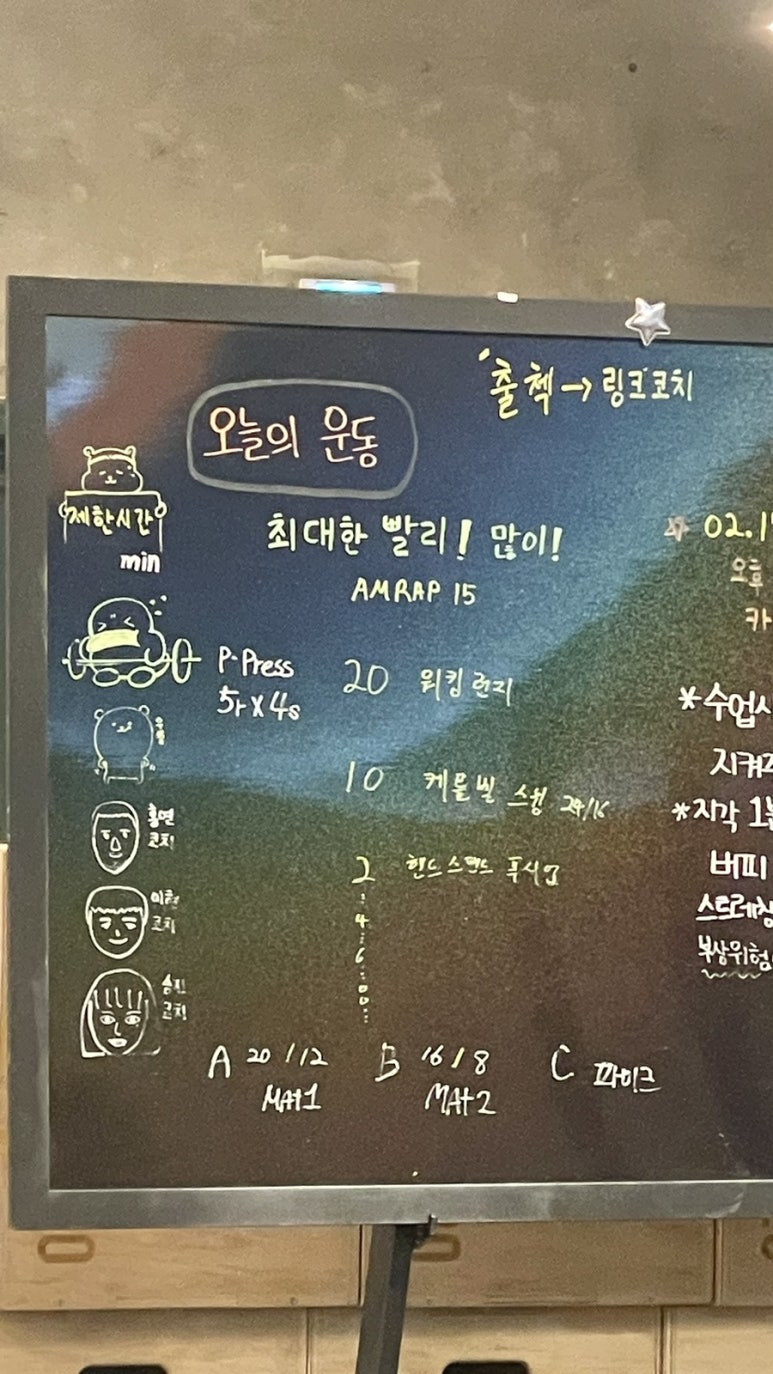 출첵→링크코치
오늘의 운동
제한시간
min
최대한 빨리! 많이!
AMRAP 15
P-Press
5r x 4s
20 워킹 런지
10 케틀벨 스윙 24/16
2 핸드스탠드 푸시업
4
6
8
홍연
코치
코치
코치
A 20/12
MAt1
B 16/8
MAt2
C 파이크
02.1
오후
카
*수업시
지켜
*지각 1분
버피
스트레칭
부상위험